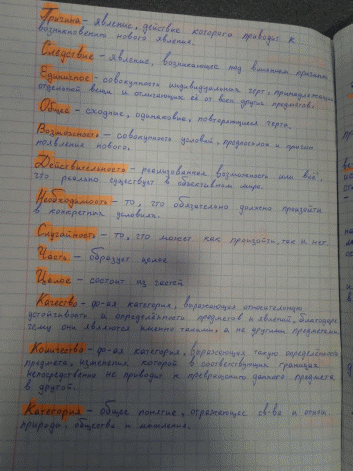 Причина - явление, действие которого приводит к
возникновению нового явления.
Следствие - явление, возникающее под влиянием причины
Единичное - совокупность индивидуальных черт, принадлежащих
отдельной вещи и отличающие её от всех других предметов.
Общее - сходные, одинаковые, повторяющиеся черты.
Возможность - совокупность условий, предпосылок и причин
появление нового.
Действительность - реализованная возможность или всё
что реально существует в объективном мире.
Необходимость - то, что обязательно должно произойти
в конкретных условиях.
Случайность - то, что может как произойти, так и нет.
Часть - образует целое
Целое - состоит из частей
Качество - ф-ая категория, выражающая относительную
устойчивость и определённость предметов и явлений, благодаря
чему они являются именно такими, а не другими предметами
Количество - ф-ая категория, выражающая такую определённость
предмета, изменения которой в соответствующих границах
непосредственно не приводит к превращению данного предмета
в другой.
Категория - общее понятие, отражающее св-ва и отнош.
природы, общества и мышления.